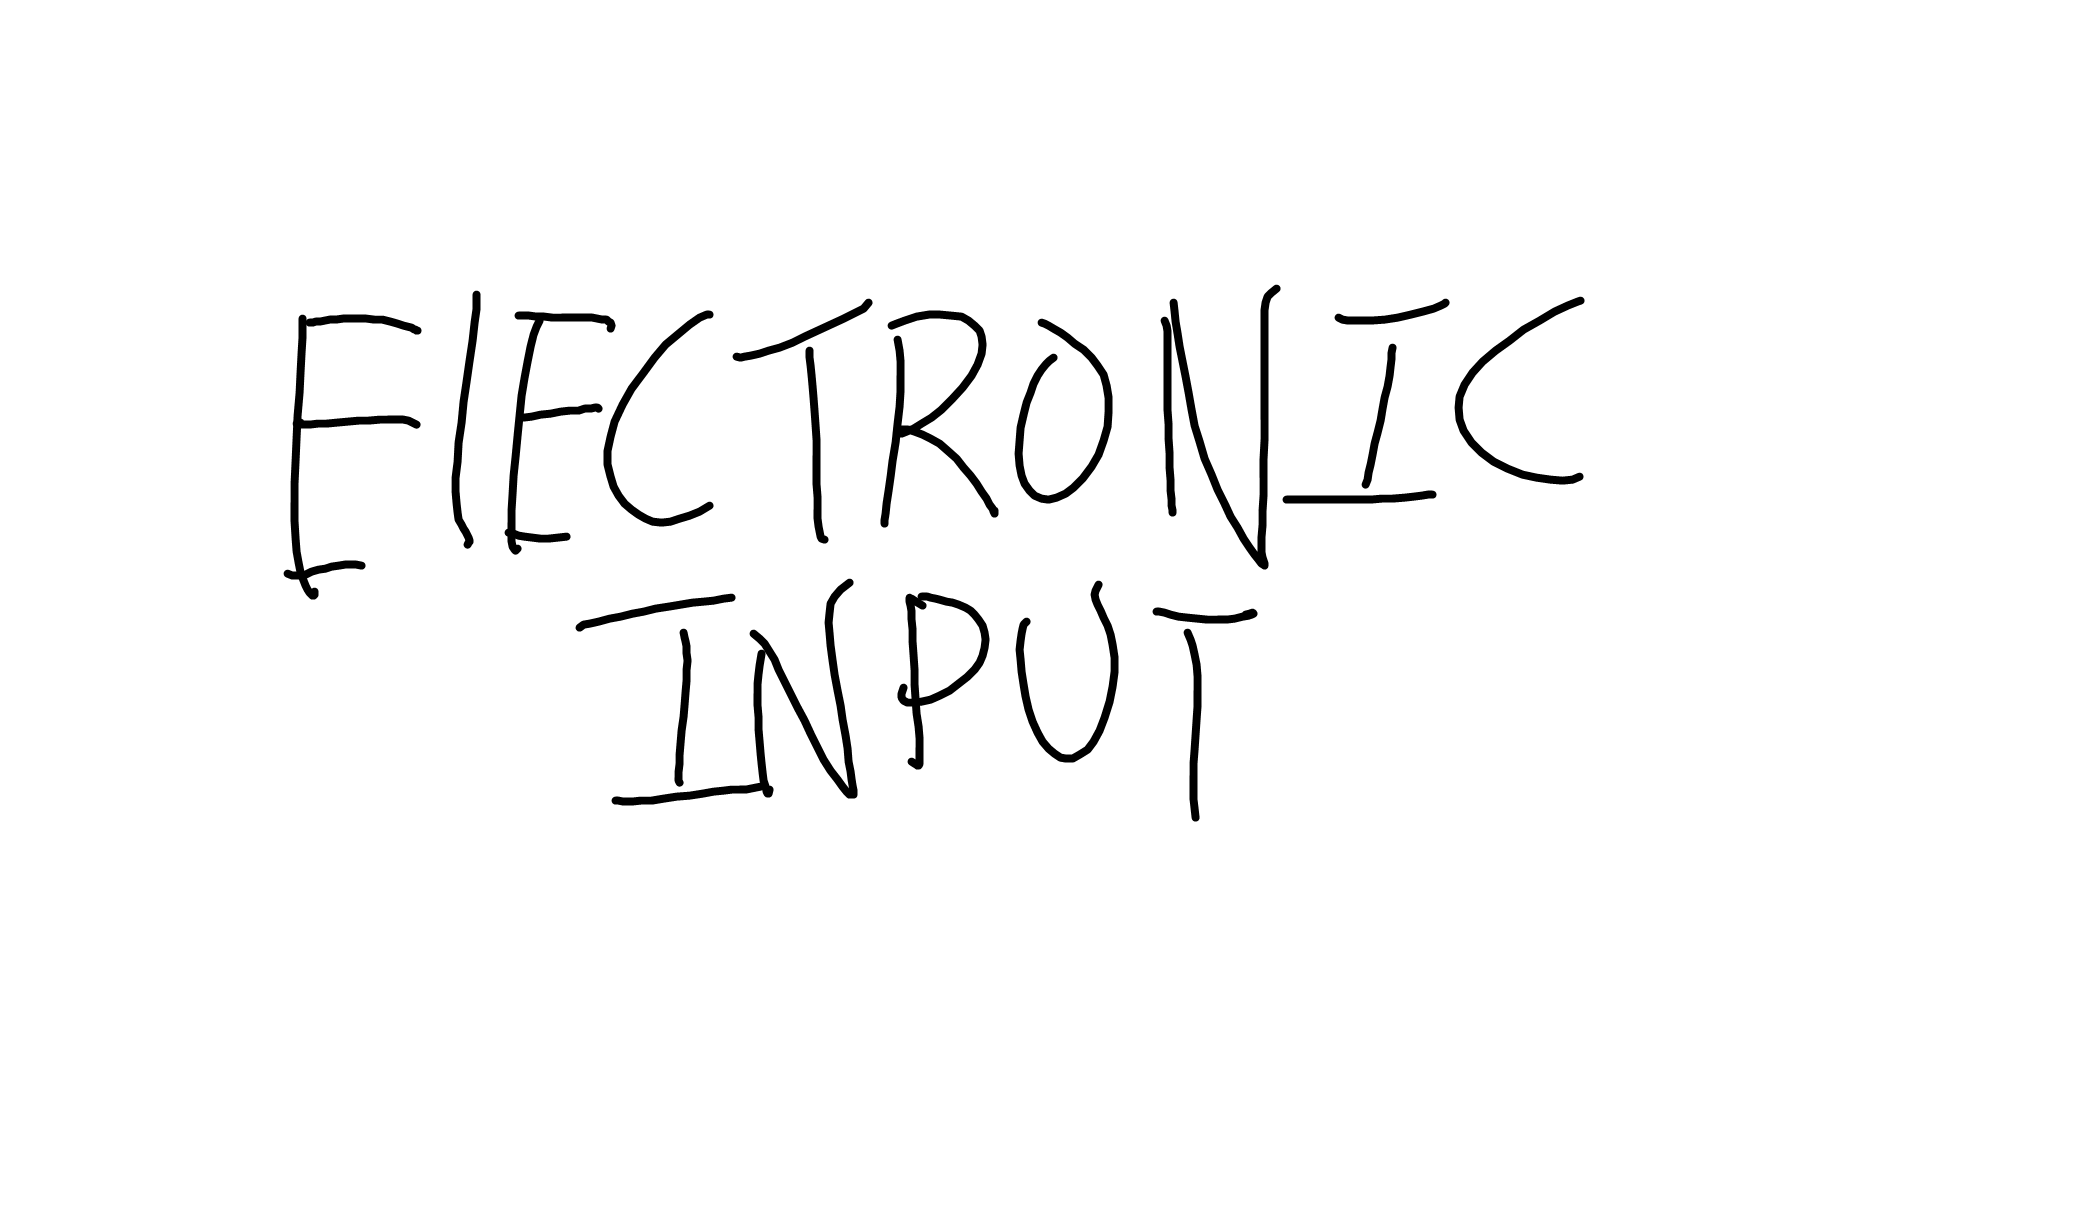 ElECTRONIC
INPUT